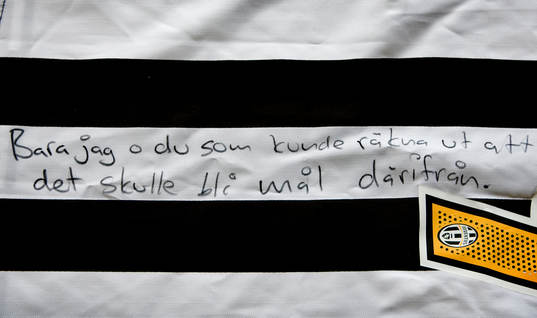 Bara jag o du som kunde räkna ut att
det skulle bli mål därifrån.